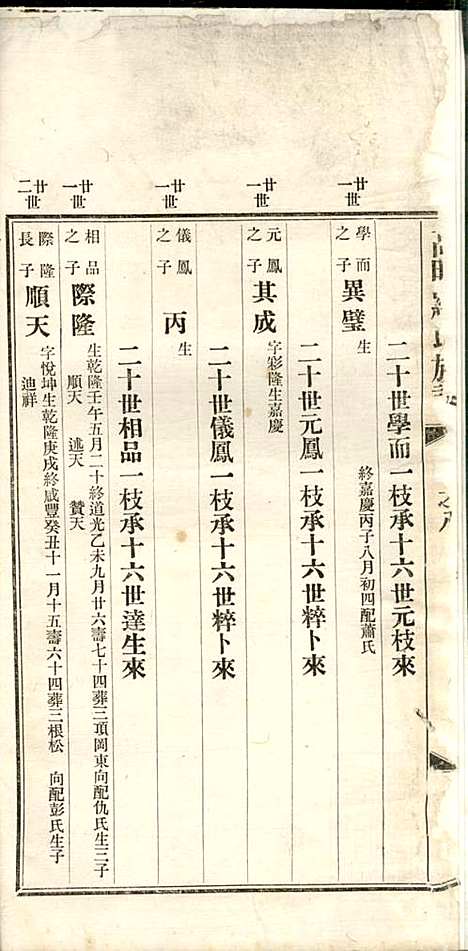 二十世學而一枝承十六世元枝來
廿一世
學而之子 異璧 生 終嘉慶丙子八月初四配蕭氏
二十世元鳳一枝承十六世粹卜來
廿一世
元鳳之子 其成 字彩隆生嘉慶
二十世儀鳳一枝承十六世粹卜來
廿一世
儀鳳之子 丙 生
二十世相品一枝承十六世達生來
廿一世
相品之子 際隆 生乾隆壬午五月二十終道光乙未九月廿六壽七十四葬三項岡東向配仇氏生三子
順天 述天 贊天
廿二世
際隆長子 順天 字悅坤生乾隆庚戌終咸豐癸丑十一月十五壽六十四葬三根松 向配彭氏生子
迪祥